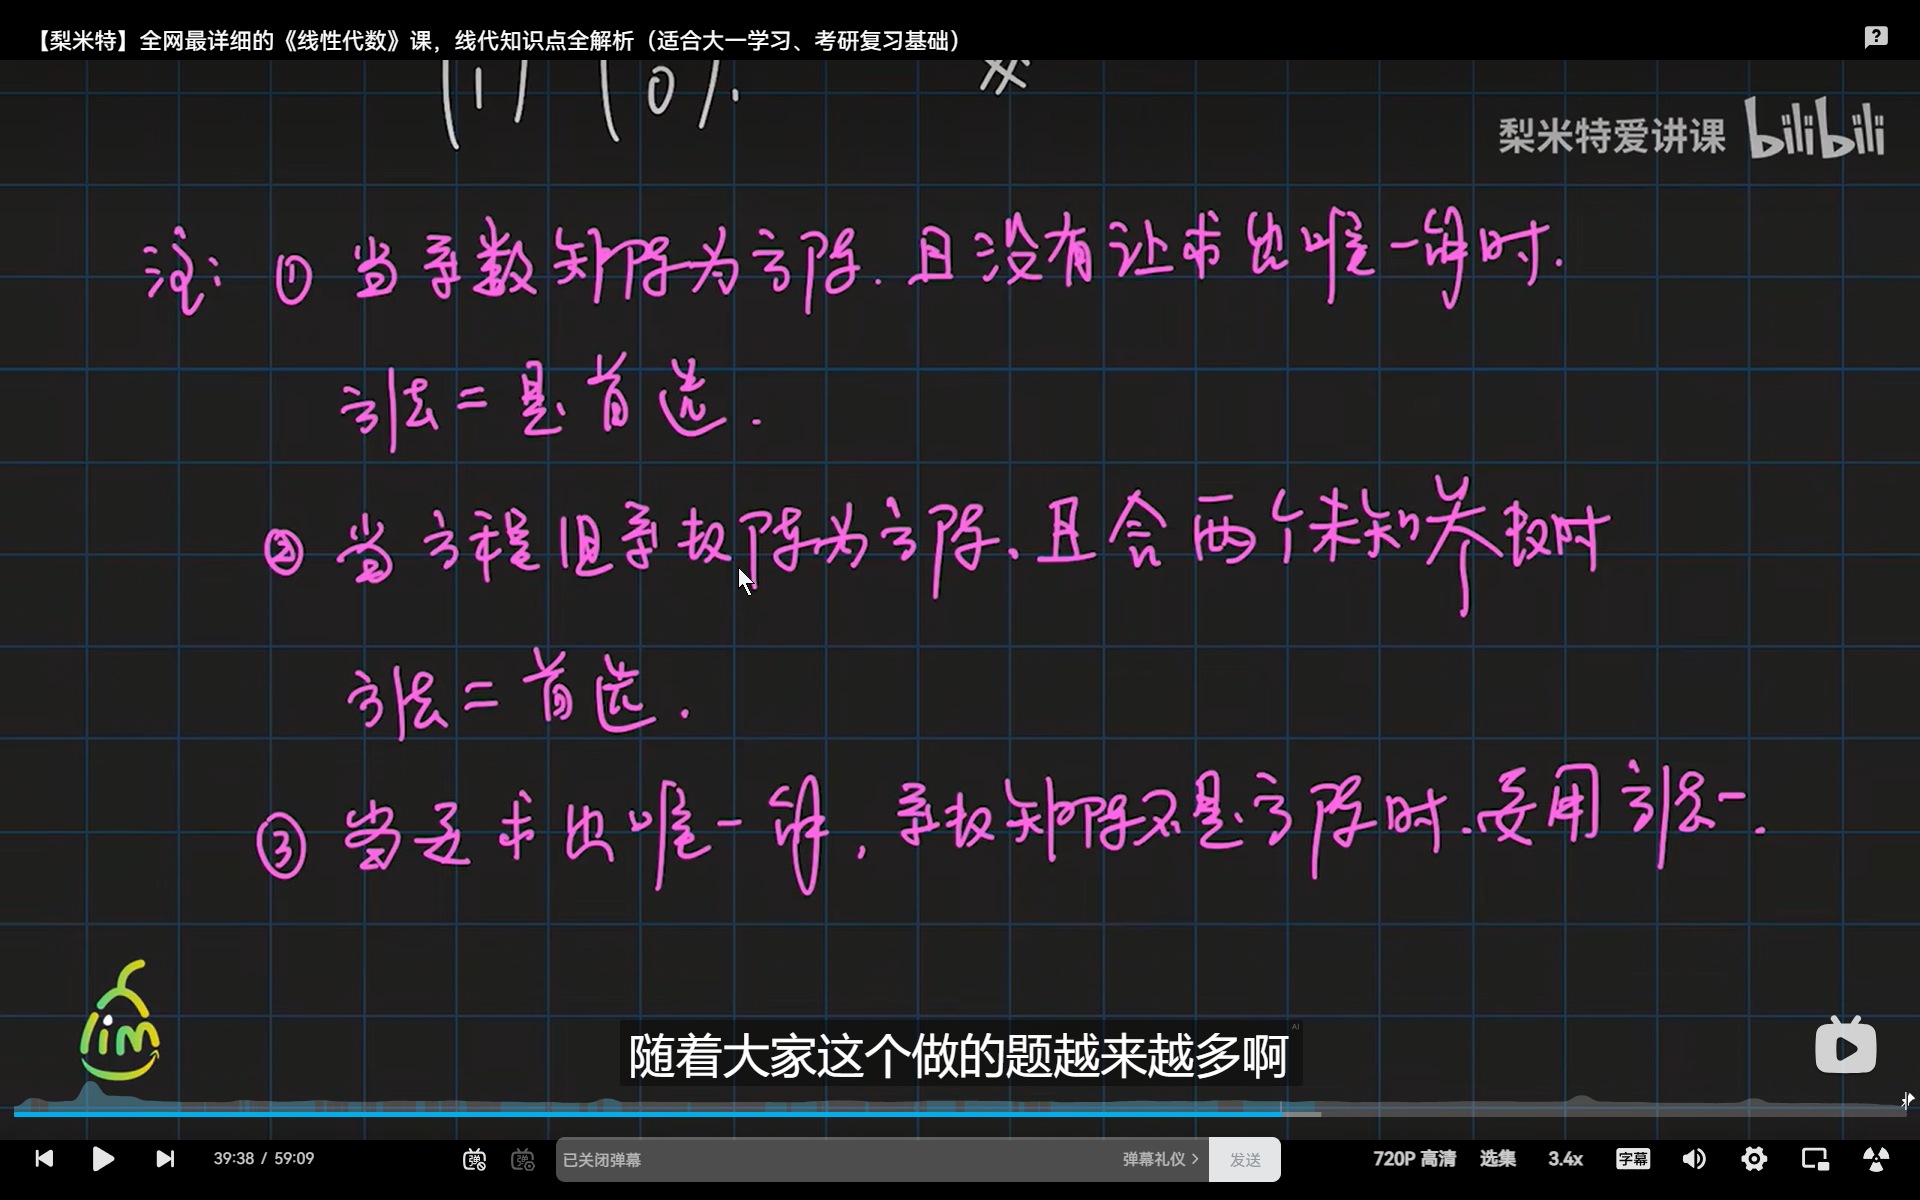 【梨米特】全网最详细的《线性代数》课，线代知识点全解析（适合大一学习、考研复习基础）
(1) (0).
梨米特爱讲课 bilibili
注: ① 当系数矩阵为方阵.且没有让求出唯一解时.
方法二是首选.
② 当方程组系数阵为方阵、且含两个未知参数时
方法二首选.
③ 当是求出唯一解,系数矩阵不是方阵时.要用方法一.
lim
随着大家这个做的题越来越多啊
AI
39:38 / 59:09
弹
弹
已关闭弹幕
弹幕礼仪 >
发送
720P 高清
选集
3.4x
字幕